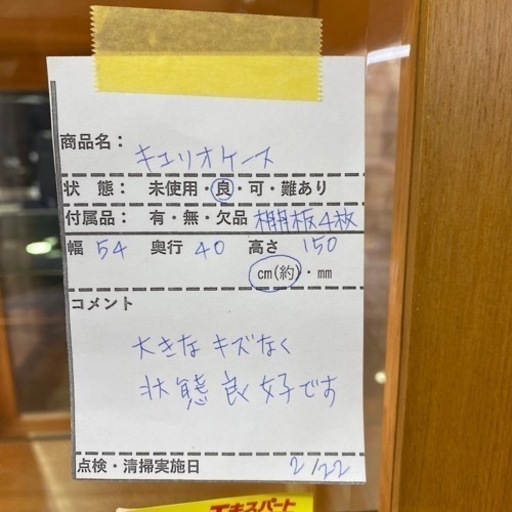 商品名： キュリオケース
状　態： 未使用・良・可・難あり
付属品： 有・無・欠品 棚板4枚
幅 54 奥行 40 高さ 150
cm(約)・mm
コメント
大きなキズなく
状態良好です
点検・清掃実施日 2/22
エキスパート